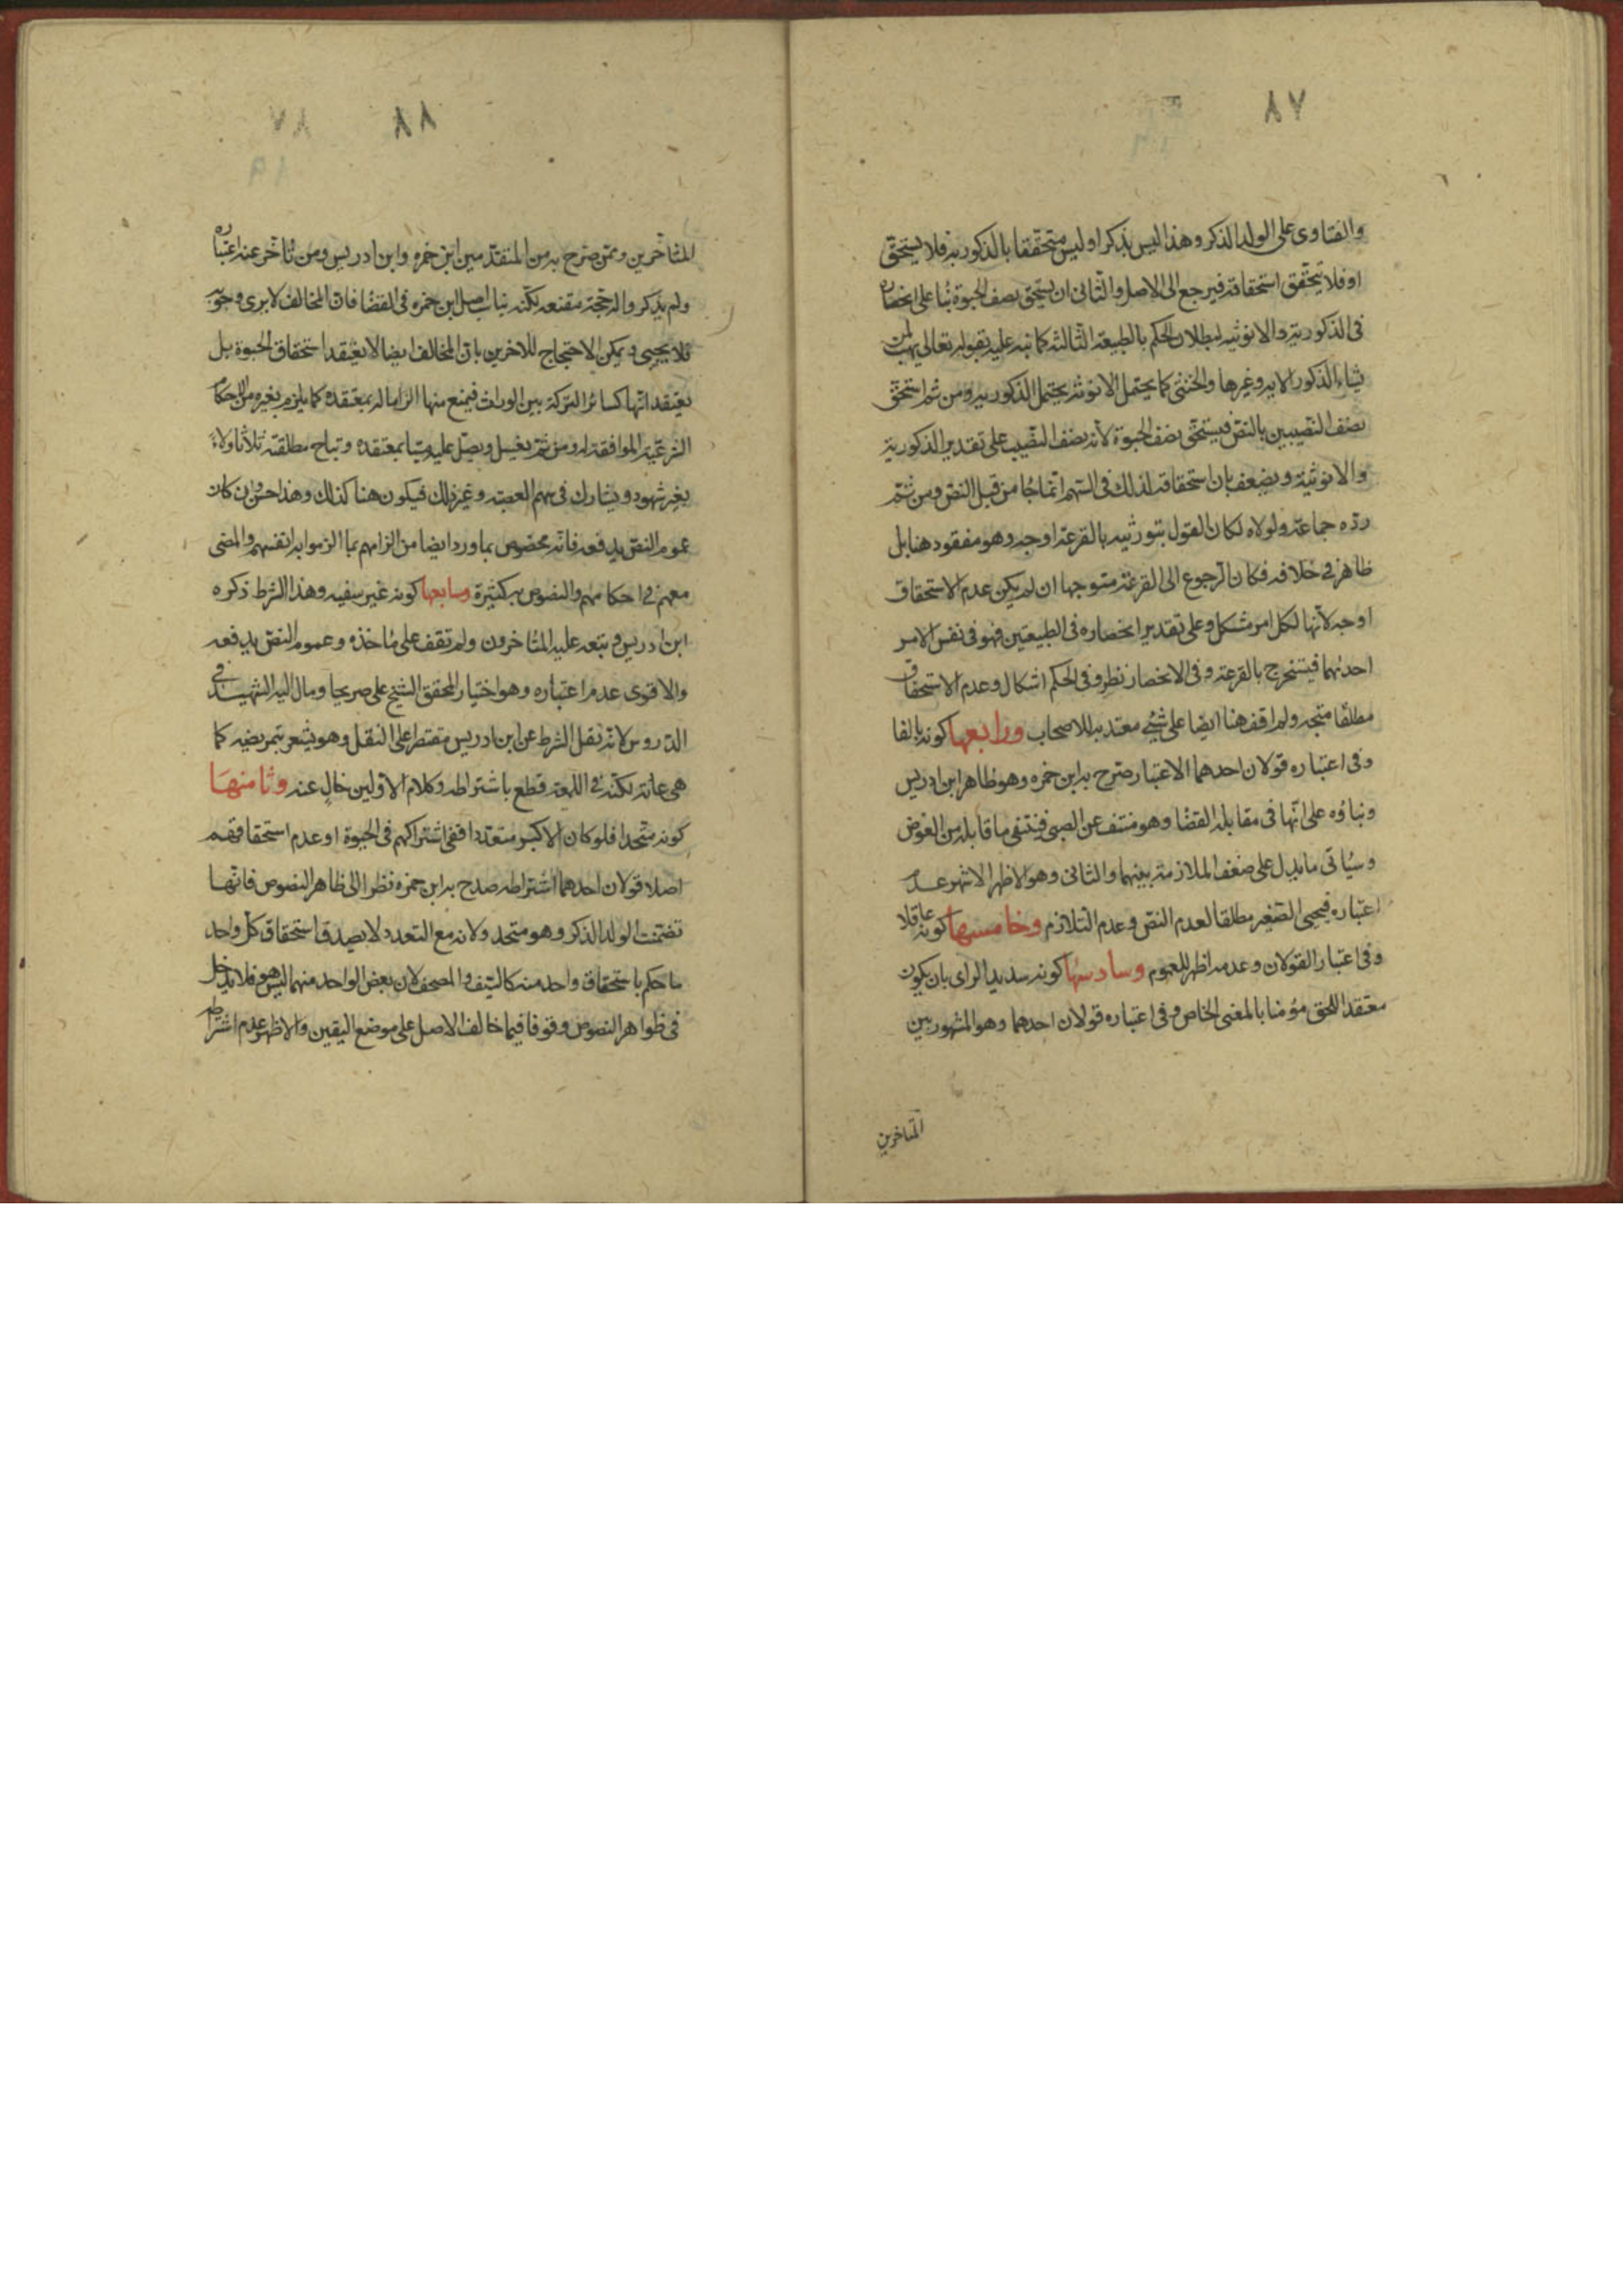 ٨٧
والفتاوى على الولد الذكر وهذا ليس بذكر او ليس متحققا بالذكورية فلا يستحق
او فلا يتحقق استحقاقه فيرجع الى الاصل والثانى ان يستحق نصف الحبوة بناء على انحصاره
فى الذكورية والانوثية لبطلان الحكم بالطبيعة الثالثة كما نبه عليه بقوله تعالى يهب لمن
يشاء الذكور الاية وغيرها والخنثى كما يحتمل الانوثة يحتمل الذكورية ومن ثم استحق
نصف النصيبين بالنص فيستحق نصف الحبوة لانه نصف النصيب على تقدير الذكورية
والانوثية ويضعف بان استحقاقه لذلك فى السهم انما جاء من قبل النص ومن ثم
رده جماعة ولولاه لكان القول بتوريثه بالقرعة اوجه وهو مفقود هنا بل
ظاهر فى خلافه فكان الرجوع الى القرعة متوجها ان لم يكن عدم الاستحقاق
اوجه لانها لكل امر مشكل وعلى تقدير انحصاره فى الطبيعتين فهو فى نفس الامر
احدىهما فيستخرج بالقرعة وفى الانحصار نظر وفى الحكم اشكال وعدم الاستحقاق
مطلقا متجه ولم اقف هنا ايضا على شيء معتد به للاصحاب ورابعها كونه بالغا
وفى اعتباره قولان احدهما الاعتبار صرح به ابن حمزه وهو ظاهر ابن ادريس
وبناؤه على انها فى مقابلة القضا وهو منتف عن الصبى فينتفى ما قابله من العوض
وسياتى ما يدل على ضعف الملازمة بينهما والثانى وهو الاظهر الاشهر عدم
اعتباره فيحبى الصغير مطلقا لعدم النص وعدم التلازم وخامسها كونه عاقلا
وفى اعتبار القولان وعدمه اظهر للعموم وسادسها كونه سديد الراى بان يكون
معتقدا للحق مؤمنا بالمعنى الخاص وفى اعتباره قولان احدهما وهو المشهور بين
المتاخرين
٨٨
المتاخرين وممن صرح به من المتقدمين ابن حمزه وابن ادريس ومن تاخر عنه اعتباره
ولم يذكر والد حجة مقنعه لكنه يناسب اصل ابن حمزه فى القضا فان المخالف لا يرى وجوبه
فلا يحبى ويمكن الاحتجاج للاخرين بان المخالف ايضا لا يعتقد استحقاق الحبوة بل
يعتقد انها كسائر التركة بين الوراث فيمنع منها الزاما له بمعتقده كما يلزم بغيره من الاحكام
الشرعية الموافقة له ومن ثم يغسل ويصلى عليه ميتا بمعتقده وتباح مطلقته ثلاثا ولاءً
بغير شهود ويشارك فى سهم العصبة وغير ذلك فيكون هنا كذلك وهذا حسن وان كان
عموم النص يدفعه فانه مخصوص بما ورد ايضا من الزامهم بما الزموا به انفسهم والمضى
معهم فى احكامهم والنصوص به كثيرة وسابعها كونه غير سفيه وهذا الشرط ذكره
ابن ادريس وتبعه عليه المتاخرون ولم نقف على ماخذه وعموم النص يدفعه
والاقوى عدم اعتباره وهو اختيار المحقق الشيخ على صريحا ومال اليه الشهيد فى
الدروس لانه نقل الشرط عن ابن ادريس مقتصرا على النقل وهو يشعر بتمريضه كما
هى عادته لكنه فى اللمعة قطع باشتراطه وكلام الاولين خال عنه وثامنها
كونه متحدا فلو كان الاكبر متعددا ففى اشتراكهم فى الحبوة او عدم استحقاقهم
اصلا قولان احدهما اشتراطه صدح به ابن حمزه نظرا الى ظاهر النصوص فانها
تضمنت الولد الذكر وهو متحد ولانه مع التعدد لا يصدق استحقاق كل واحد
ما حكم باستحقاق واحد منه كالسيف والمصحف لان بعض الواحد منهما ليس هو فلا يدخل
فى ظواهر النصوص وقوفا فيما خالف الاصل على موضع اليقين والاظهر عدم اشتراطه